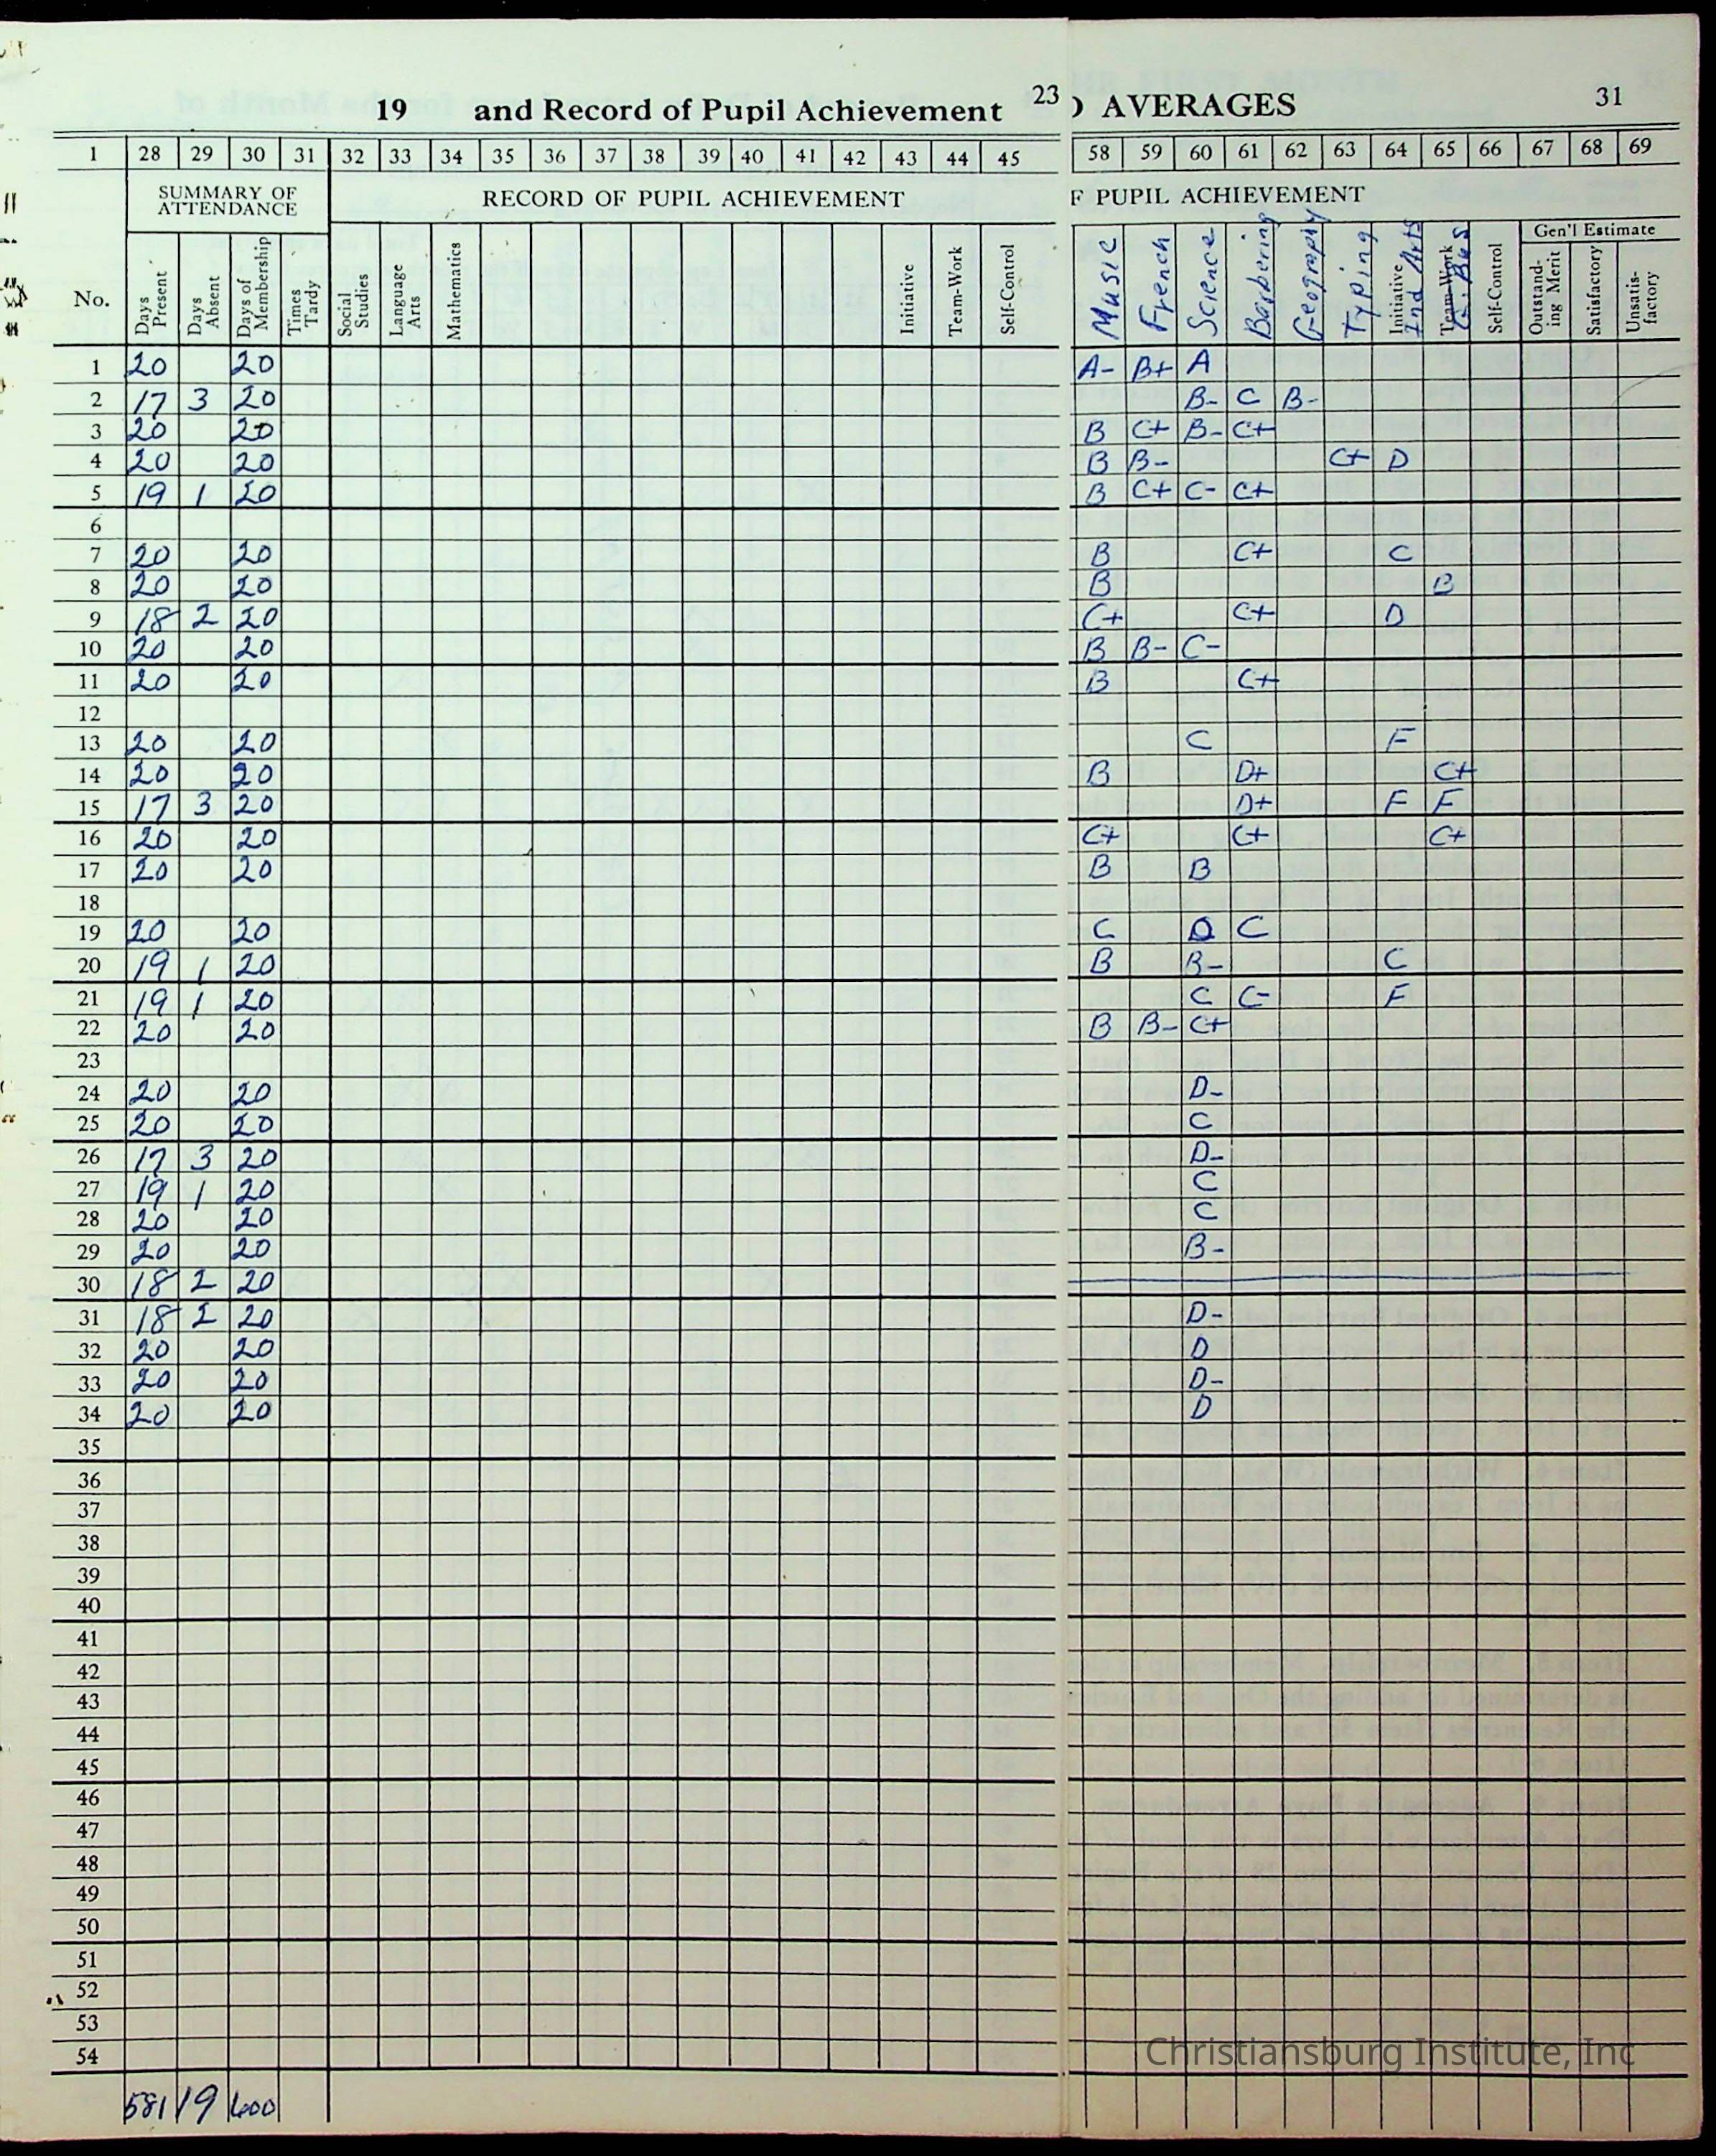 19 and Record of Pupil Achievement 23 ) AVERAGES 31
1 28 29 30 31 32 33 34 35 36 37 38 39 40 41 42 43 44 45 58 59 60 61 62 63 64 65 66 67 68 69
SUMMARY OF ATTENDANCE RECORD OF PUPIL ACHIEVEMENT F PUPIL ACHIEVEMENT
Gen'l Estimate
No. Days Present Days Absent Days of Membership Times Tardy Social Studies Language Arts Mathematics Initiative Team-Work Self-Control Music French Science Barbering Geography Typing Initiative Ind Arts Team-Work G. Bus Self-Control Outstanding Merit Satisfactory Unsatisfactory
1 20 20 A- B+ A
2 17 3 20 B- C B-
3 20 20 B C+ B- C+
4 20 20 B B- C+ D
5 19 1 20 B C+ C- C+
6
7 20 20 B C+ C
8 20 20 B B
9 18 2 20 C+ C+ D
10 20 20 B B- C-
11 20 20 B C+
12
13 20 20 C F
14 20 20 B D+ C+
15 17 3 20 D+ F F
16 20 20 C+ C+ C+
17 20 20 B B
18
19 20 20 C D C
20 19 1 20 B B- C
21 19 1 20 C C- F
22 20 20 B B- C+
23
24 20 20 D-
25 20 20 C
26 17 3 20 D-
27 19 1 20 C
28 20 20 C
29 20 20 B-
30 18 2 20
31 18 2 20 D-
32 20 20 D
33 20 20 D-
34 20 20 D
35
36
37
38
39
40
41
42
43
44
45
46
47
48
49
50
51
52
53
54
581 19 600
Christiansburg Institute, Inc